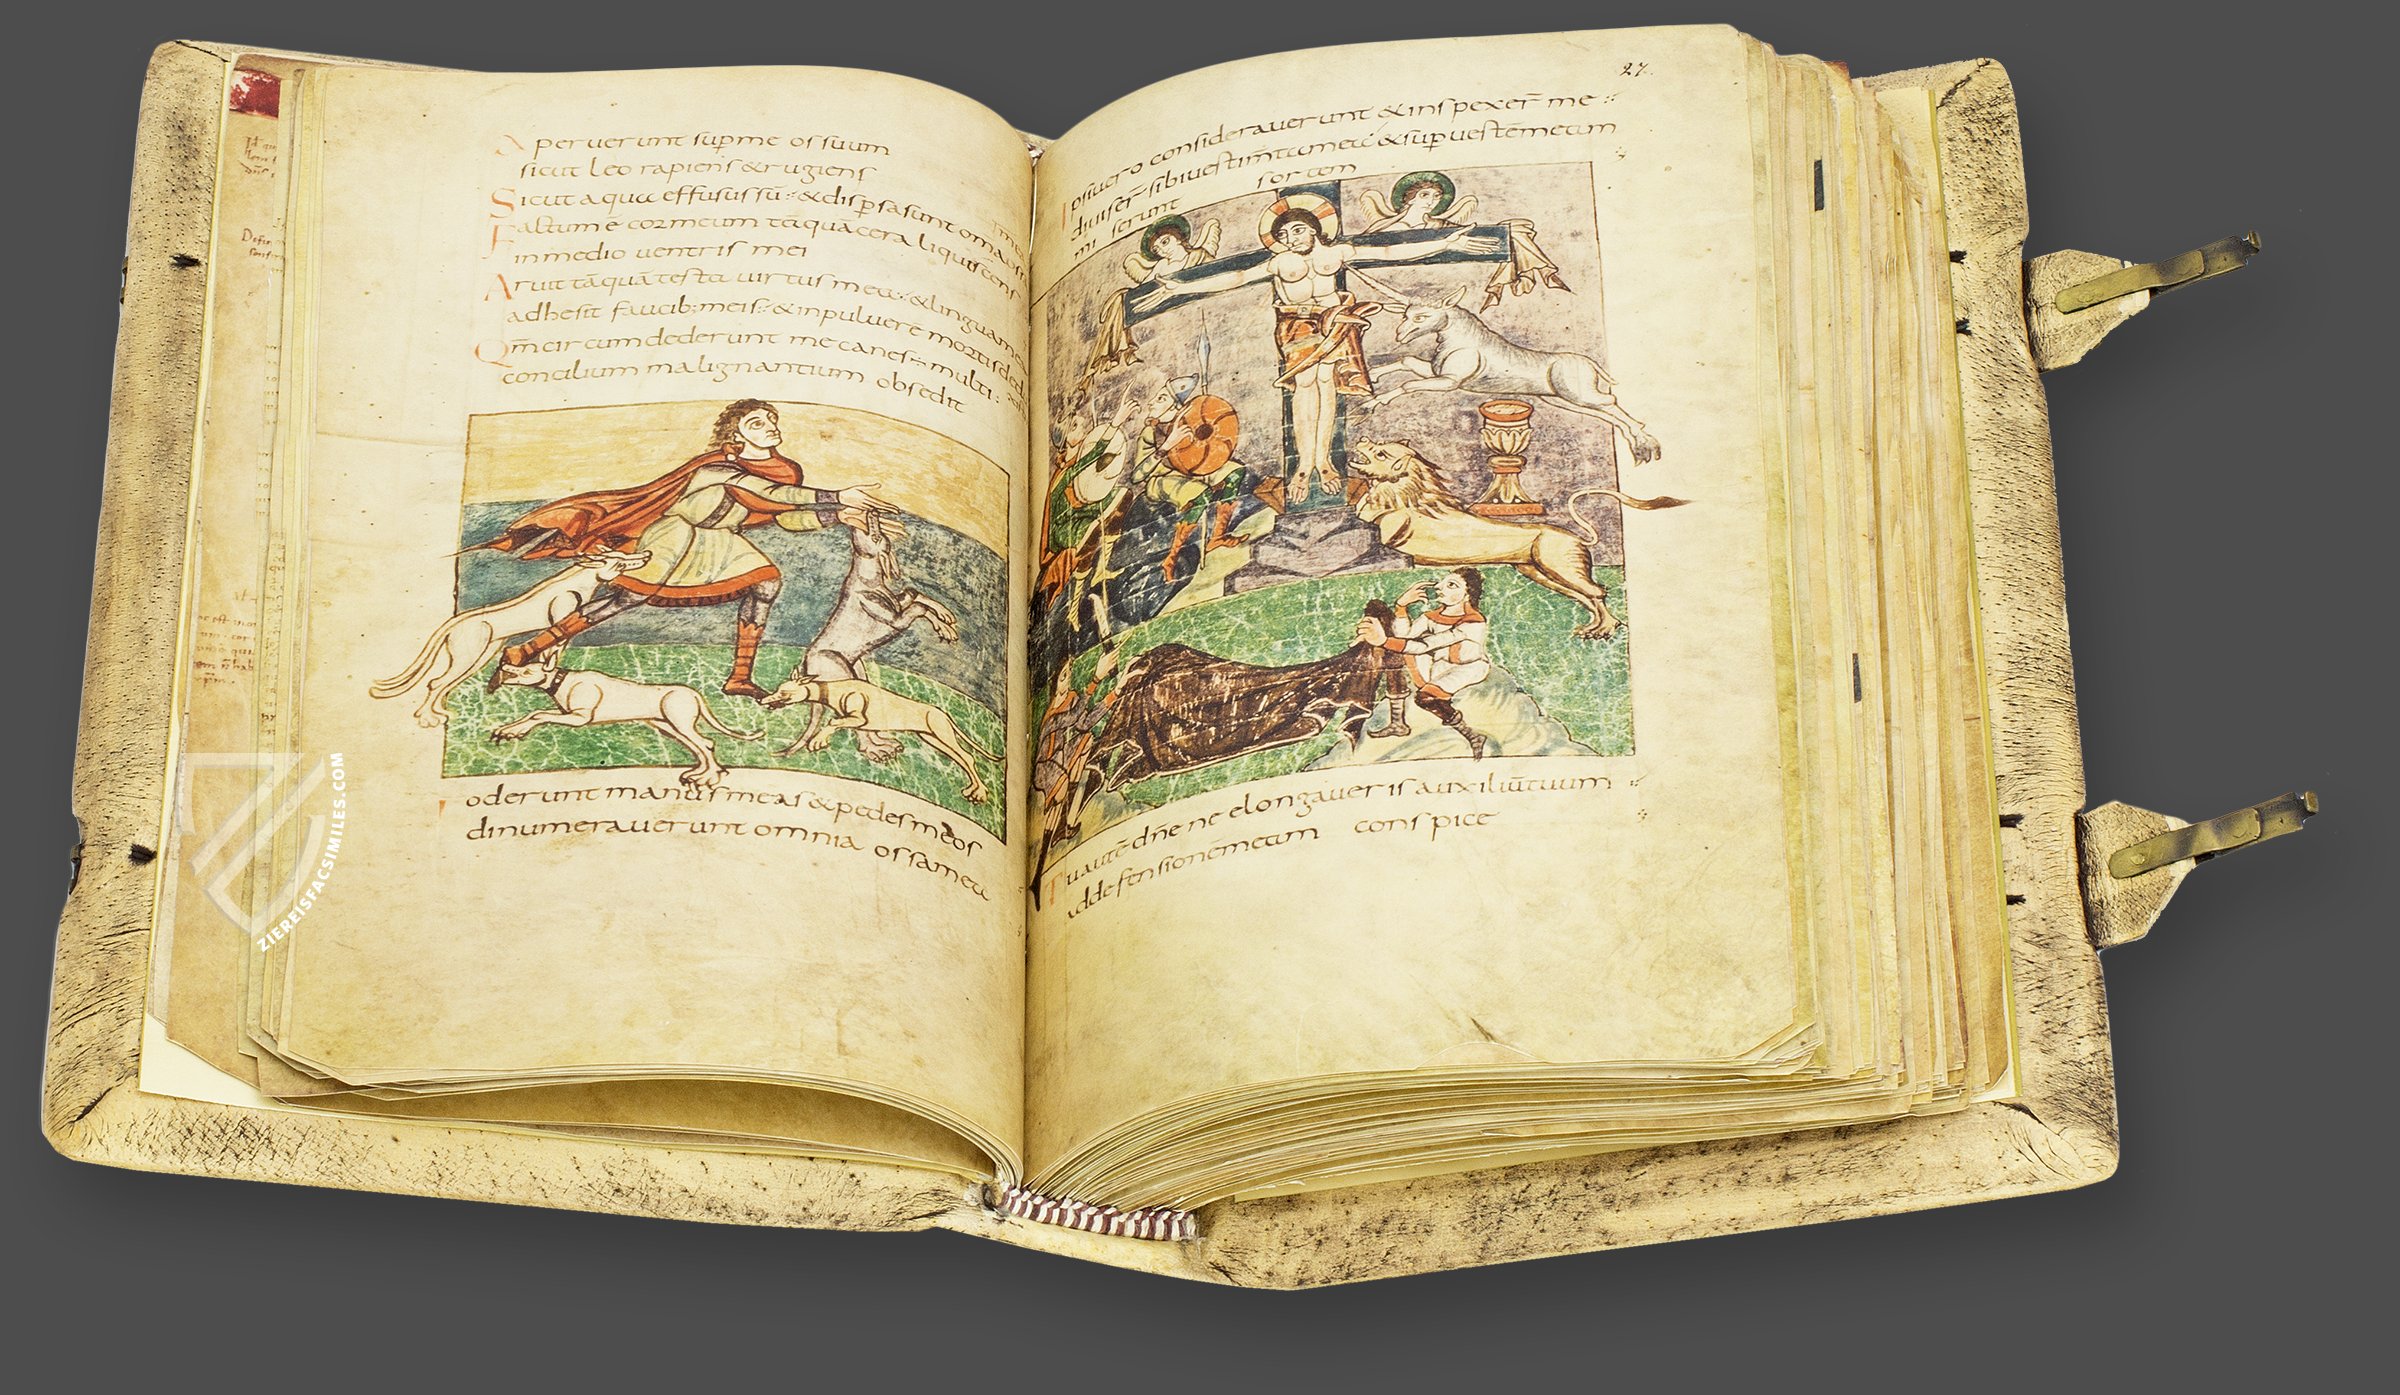 Aperuerunt sup̄me os suum
sicut leo rapiens & rugiens
Sicut aqua effusus sū: & dispsa sunt omnia ossa
Factum ē cor meum tāquā cera liquescens
in medio uentris mei
Aruit tāquā testa uirtus mea: & lingua mea
adhesit faucib; meis: & in puluerē mortis ded
Qm̄ circumdederunt me canes: multi:
concilium malignantium obsedit
foderunt manus meas & pedes meos
dinumerauerunt omnia ossa mea
27.
Ipsi uero considerauerunt & inspexer̄ me:
diuiser̄ sibi uestim̄ta mea & sup uestē meam
mi serunt sortem
Tu autē dn̄e ne elongaueris auxiliū tuum
ad defensionē meam conspice
ZIEREISFACSIMILES.COM